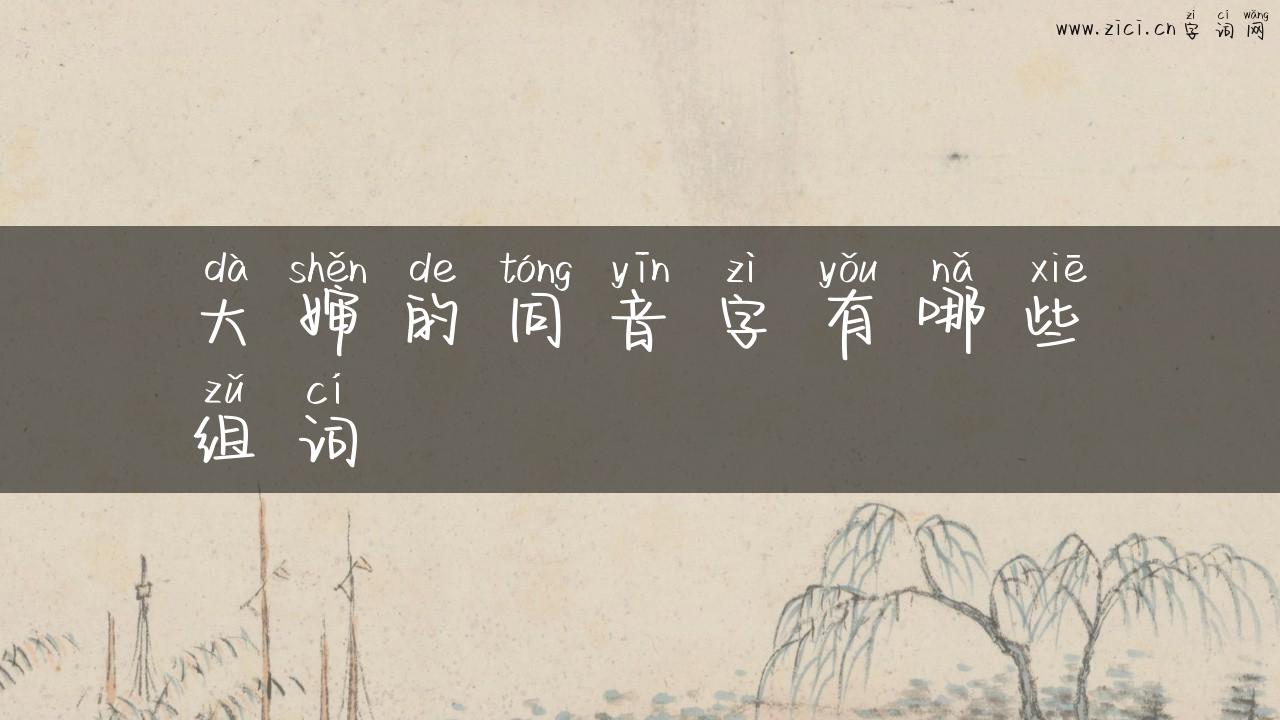 zì cí wǎng
www.zici.cn 字词网
dà shěn de tóng yīn zì yǒu nǎ xiē
大婶的同音字有哪些
zǔ cí
组词